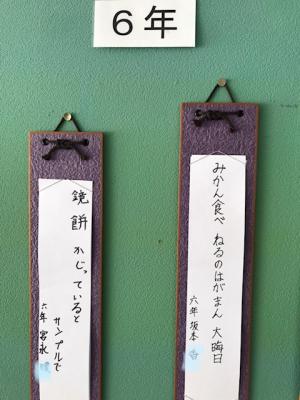 6年
みかん食べ ねるのはがまん 大晦日
六年 坂本 香
鏡餅 かじっていると
サンプルで
六年 宮永